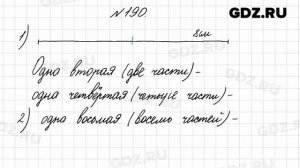 GDZ.RU
№190.
1)
8см
Одна вторая (две части) -
одна четвёртая (четыре части) -
2) одна восьмая (восемь частей) -
GDZ.RU